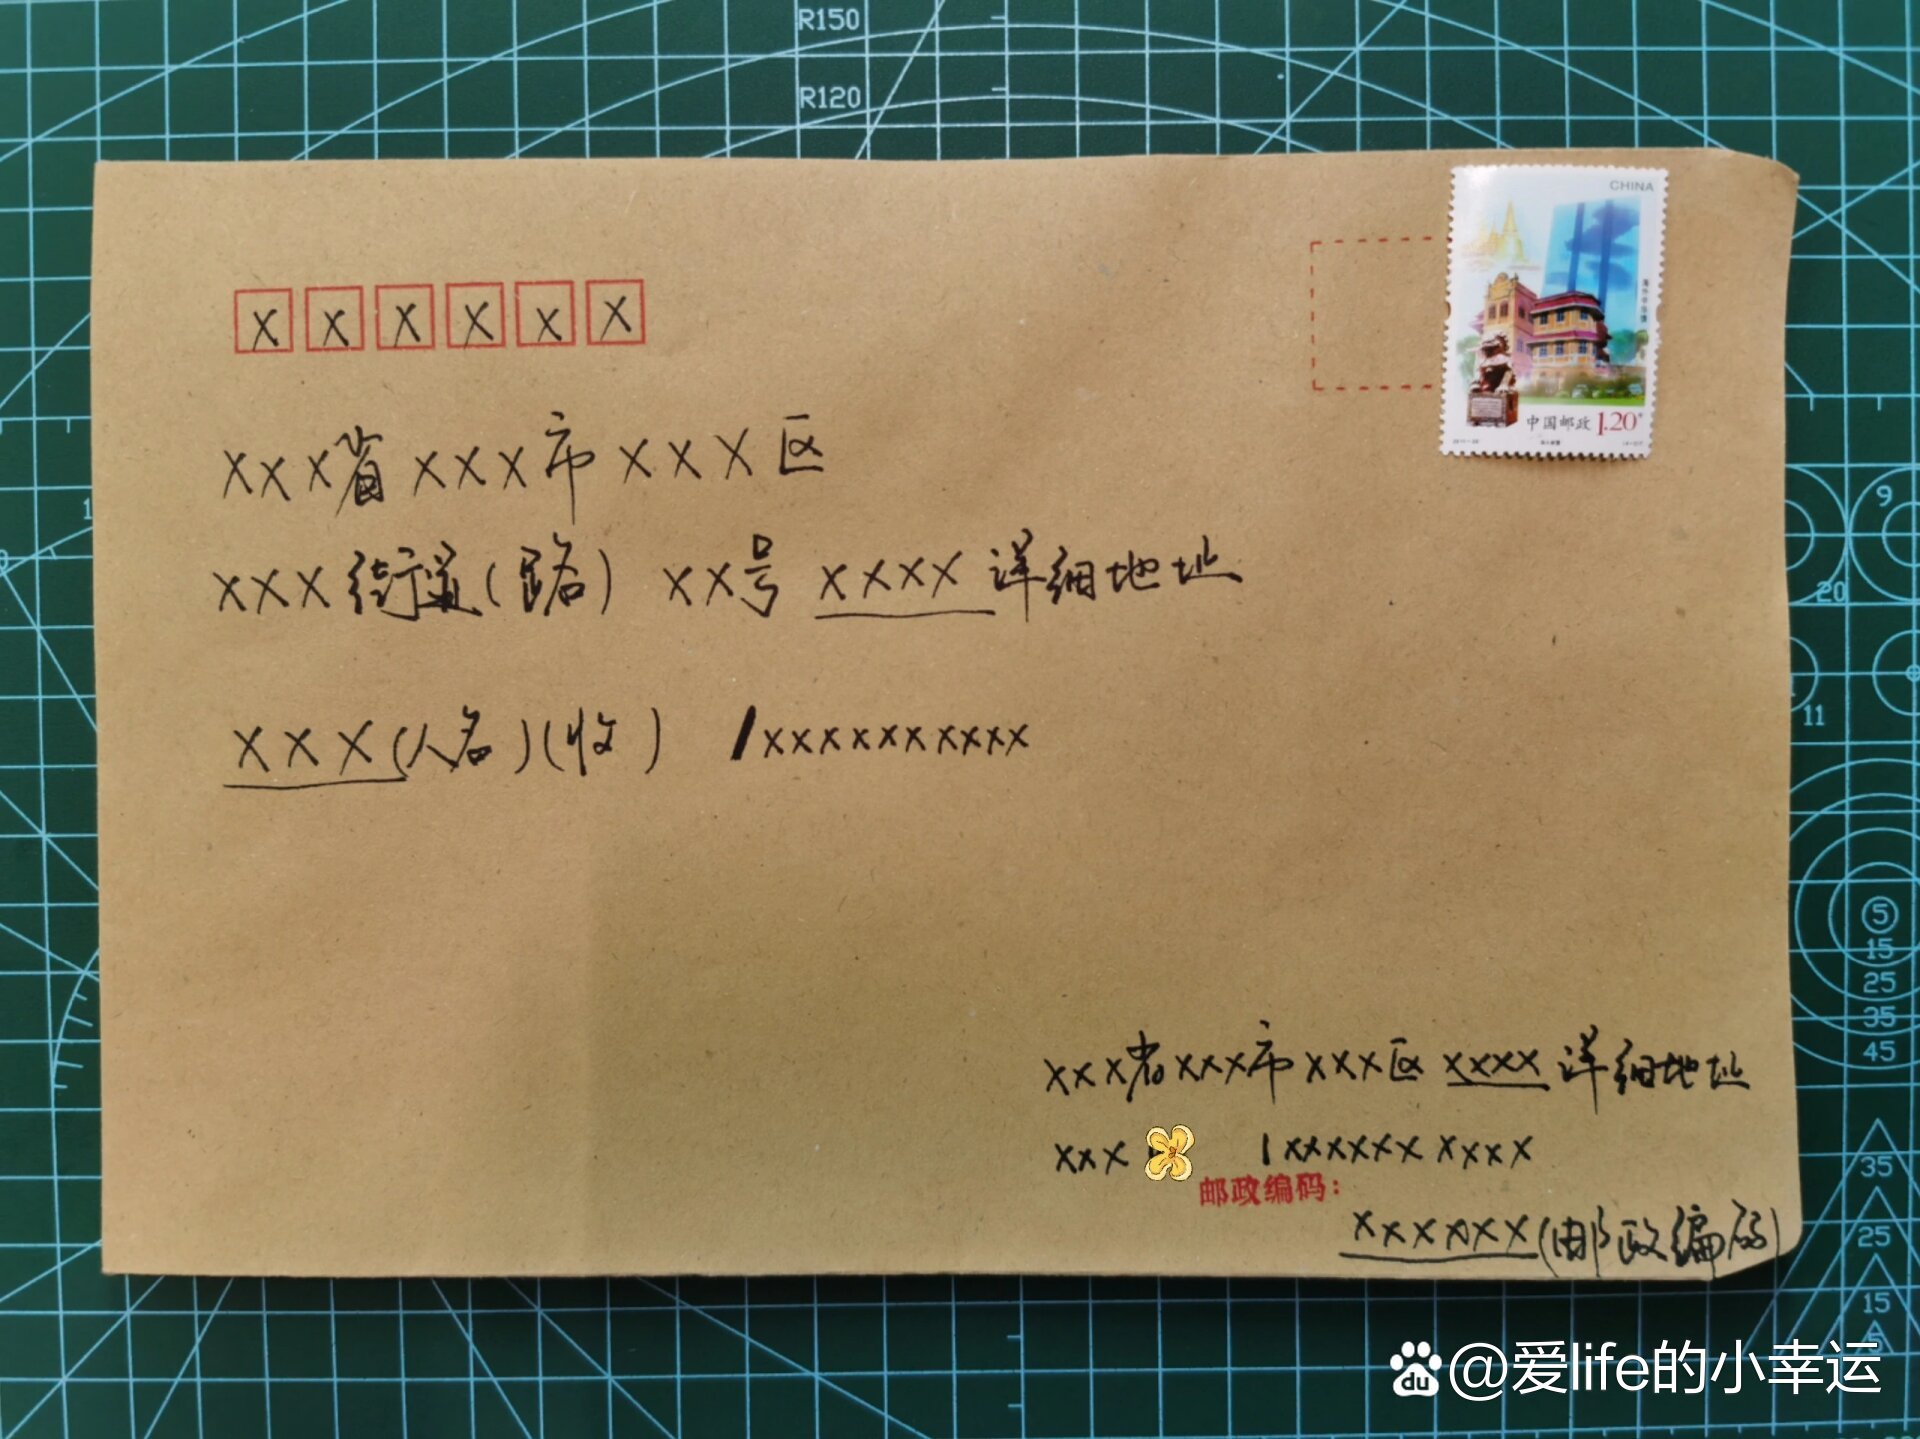 R150
R120
CHINA
中国邮政 1.20元
X X X X X X
XXX省XXX市XXX区
XXX街道(路) XX号 XXXX详细地址
XXX(人名)(收) 1XXXXXXXXXX
9
20
11
5
15
25
35
45
XXX省XXX市XXX区XXXX详细地址
XXX 1XXXXXXXXXX
邮政编码:
XXXXXX(邮政编码)
35
25
15
5
du @爱life的小幸运